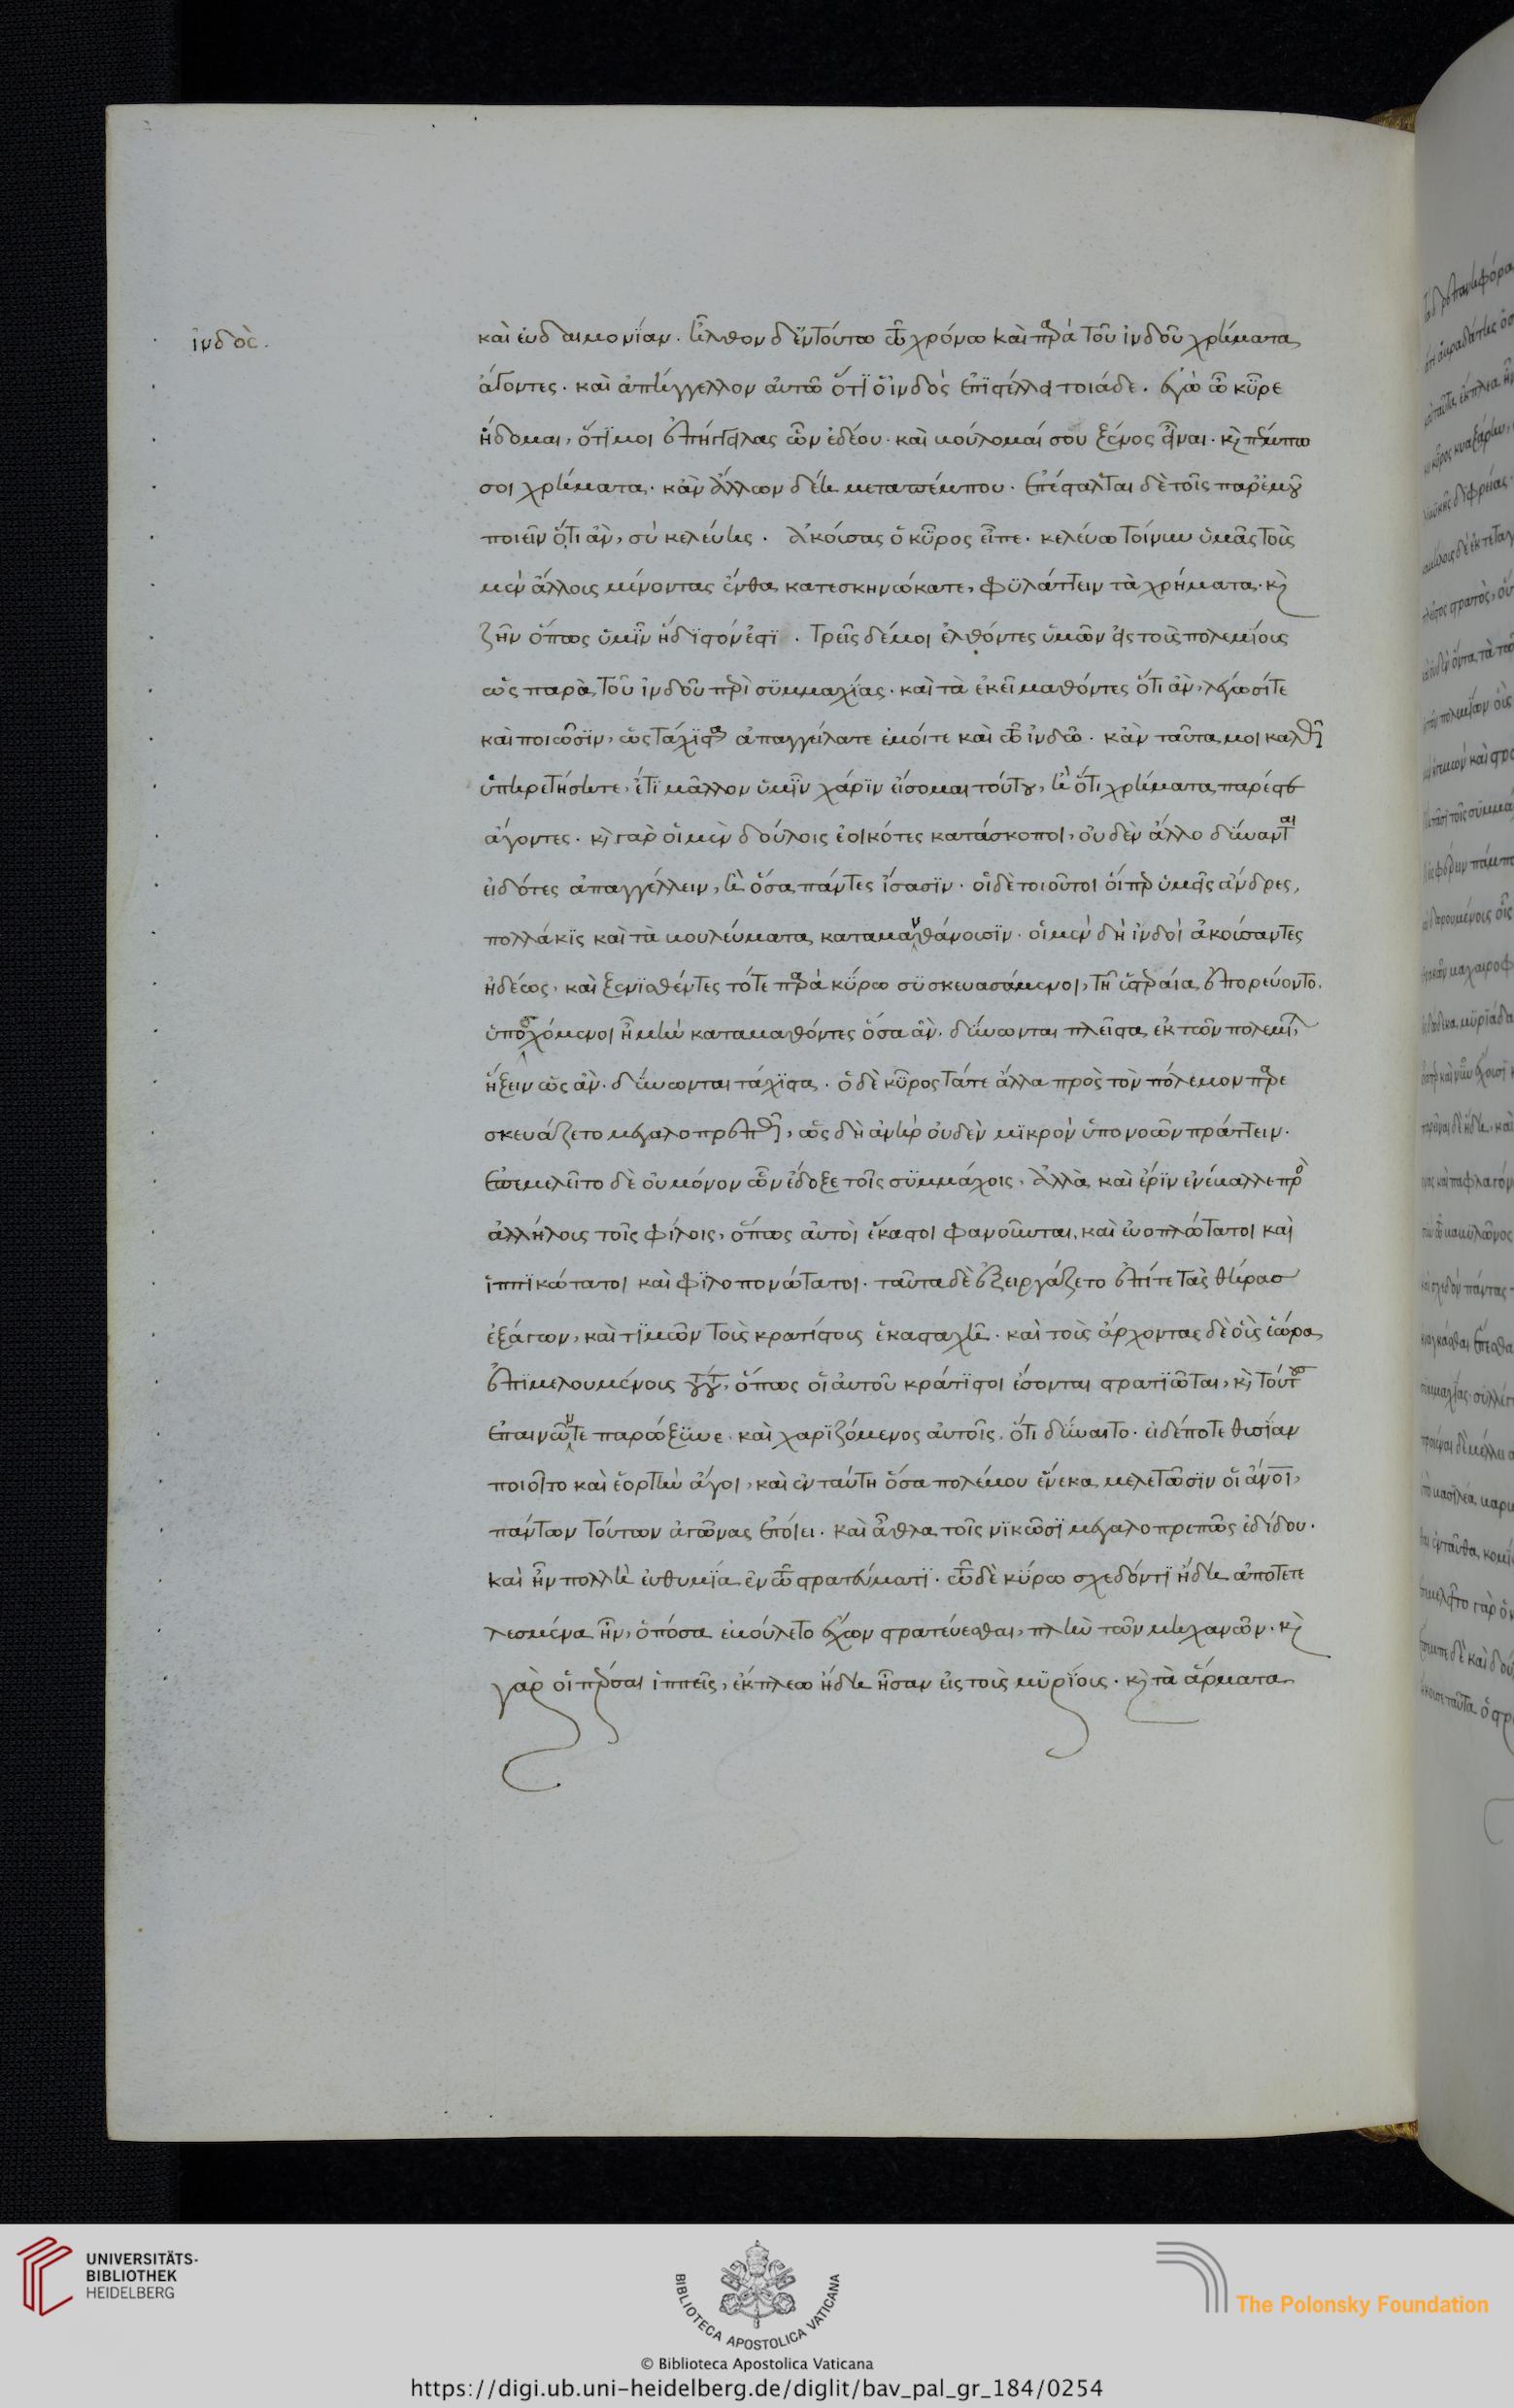 ἰνδός.
καὶ εὐδαιμονίαν. ἦλθον δ' ἐν τούτω τῶ χρόνω καὶ παρὰ τοῦ ἰνδοῦ χρήματα
ἄγοντες. καὶ ἀπήγγελλον αὐτῶ ὅτι ὁ ἰνδὸς ἐπιστέλλει τοιάδε. ἐγὼ ὦ κῦρε
ἥδομαι, ὅτι μοι ἐπήγγειλας ὧν ἐδέου. καὶ βούλομαί σου ξένος εἶναι. κ̀ πέμπω
σοι χρήματα. κἂν ἄλλων δέη μεταπέμπου. ἐπέσταλται δὲ τοῖς παρ' ἐμοῦ
ποιεῖν ὅτι ἂν, σὺ κελεύης. ἀκούσας ὁ κῦρος εἶπε. κελεύω τοίνυν ὑμᾶς τοὺς
μὲν ἄλλους μένοντας ἔνθα κατεσκηνώκατε, φυλάττειν τὰ χρήματα. κ̀
ζῆν ὅπως ὑμῖν ἥδιστόν ἐστι. τρεῖς δέ μοι ἐλθόντες ὑμῶν εἰς τοὺς πολεμίους
ὡς παρὰ τοῦ ἰνδοῦ περὶ συμμαχίας. καὶ τὰ ἐκεῖ μαθόντες ὅτι ἂν, λέγωσί τε
καὶ ποιῶσιν, ὡς τάχιστα ἀπαγγείλατε ἐμοί τε καὶ τῶ ἰνδῶ. κἂν ταῦτα μοι καλῶς
ὑπηρετήσητε, ἔτι μᾶλλον ὑμῖν χάριν εἴσομαι τούτου, ἢ ὅτι χρήματα πάρεστε
ἄγοντες. κ̀ γὰρ οἱ μὲν δούλοις ἐοικότες κατάσκοποι, οὐδὲν ἄλλο δύνανται
εἰδότες ἀπαγγέλλειν, ἢ ὅσα πάντες ἴσασιν. οἱ δὲ τοιοῦτοι οἷί περ ὑμεῖς ἄνδρες,
πολλάκις καὶ τὰ βουλεύματα καταμανθάνουσιν. οἱ μὲν δὴ ἰνδοὶ ἀκούσαντες
ἡδέως, καὶ ξενισθέντες τότε παρὰ κύρω συσκευασάμενοι, τῆ ὑστεραία ἐπορεύοντο.
ὑποσχόμενοι ἦ μὴν καταμαθόντες ὅσα ἂν. δύνωνται πλεῖστα ἐκ τῶν πολεμίων
ἥξειν ὡς ἂν. δύνωνται τάχιστα. ὁ δὲ κῦρος τά τε ἄλλα πρὸς τὸν πόλεμον παρε
σκευάζετο μεγαλοπρεπῶς, ὡς δὴ ἀνὴρ οὐδὲν μικρὸν ὑπονοῶν πράττειν.
ἐπεμελεῖτο δὲ οὐ μόνον ὧν ἔδοξε τοῖς συμμάχοις, ἀλλὰ καὶ ἔριν ἐνέβαλλε πρὸς
ἀλλήλους τοῖς φίλοις, ὅπως αὐτοὶ ἕκαστοι φανοῦνται, καὶ εὐοπλότατοι καὶ
ἱππικώτατοι καὶ φιλοπονώτατοι. ταῦτα δὲ ἐξειργάζετο ἐπί τε τὰς θήρας
ἐξάγων, καὶ τιμῶν τοὺς κρατίστους ἑκασταχῆ. καὶ τοὺς ἄρχοντας δὲ οὓς ἑώρα
ἐπιμελουμένους τούτου, ὅπως οἱ αὐτοῦ κράτιστοι ἔσονται στρατιῶται, κ̀ τούτους
ἐπαινῶν τε παρώξυνε. καὶ χαριζόμενος αὐτοῖς. ὅτι δύναιτο. εἰ δέ ποτε θυσίαν
ποιοῖτο καὶ ἑορτὴν ἄγοι, καὶ ἐν ταύτη ὅσα πολέμου ἕνεκα μελετῶσιν οἱ ἄνοι,
πάντων τούτων ἀγῶνας ἐποίει. καὶ ἆθλα τοῖς νικῶσι μεγαλοπρεπῶς ἐδίδου.
καὶ ἦν πολλὴ εὐθυμία ἐν τῶ στρατεύματι. τῶ δὲ κύρω σχεδόν τι ἤδη ἀποτετε
λεσμένα ἦν, ὁπόσα ἐβούλετο ἔχων στρατεύεσθαι, πλὴν τῶν μηχανῶν. κ̀
γὰρ οἱ πέρσαι ἱππεῖς, ἔκπλεω ἤδη ἦσαν εἰς τοὺς μυρίους. κ̀ τὰ ἅρματα
UNIVERSITÄTS-
BIBLIOTHEK
HEIDELBERG
BIBLIOTECA APOSTOLICA VATICANA
The Polonsky Foundation
© Biblioteca Apostolica Vaticana
https://digi.ub.uni-heidelberg.de/diglit/bav_pal_gr_184/0254